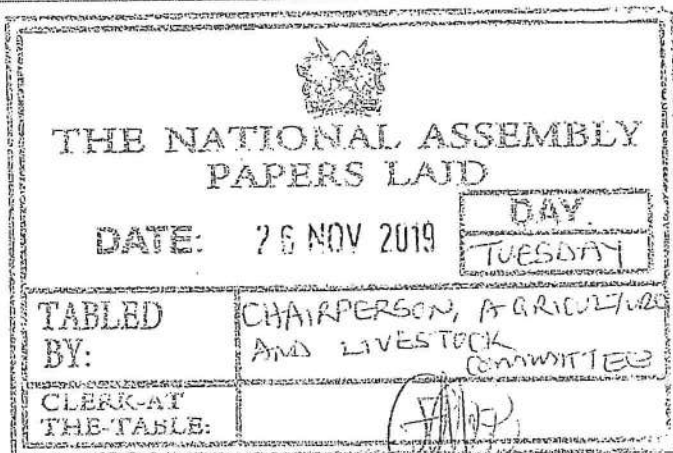 THE NATIONAL ASSEMBLY
PAPERS LAID
DATE: 26 NOV 2019
DAY.
TUESDAY
TABLED
BY:
CHAIRPERSON, AGRICULTURE
AND LIVESTOCK
COMMITTEE
CLERK-AT
THE-TABLE: